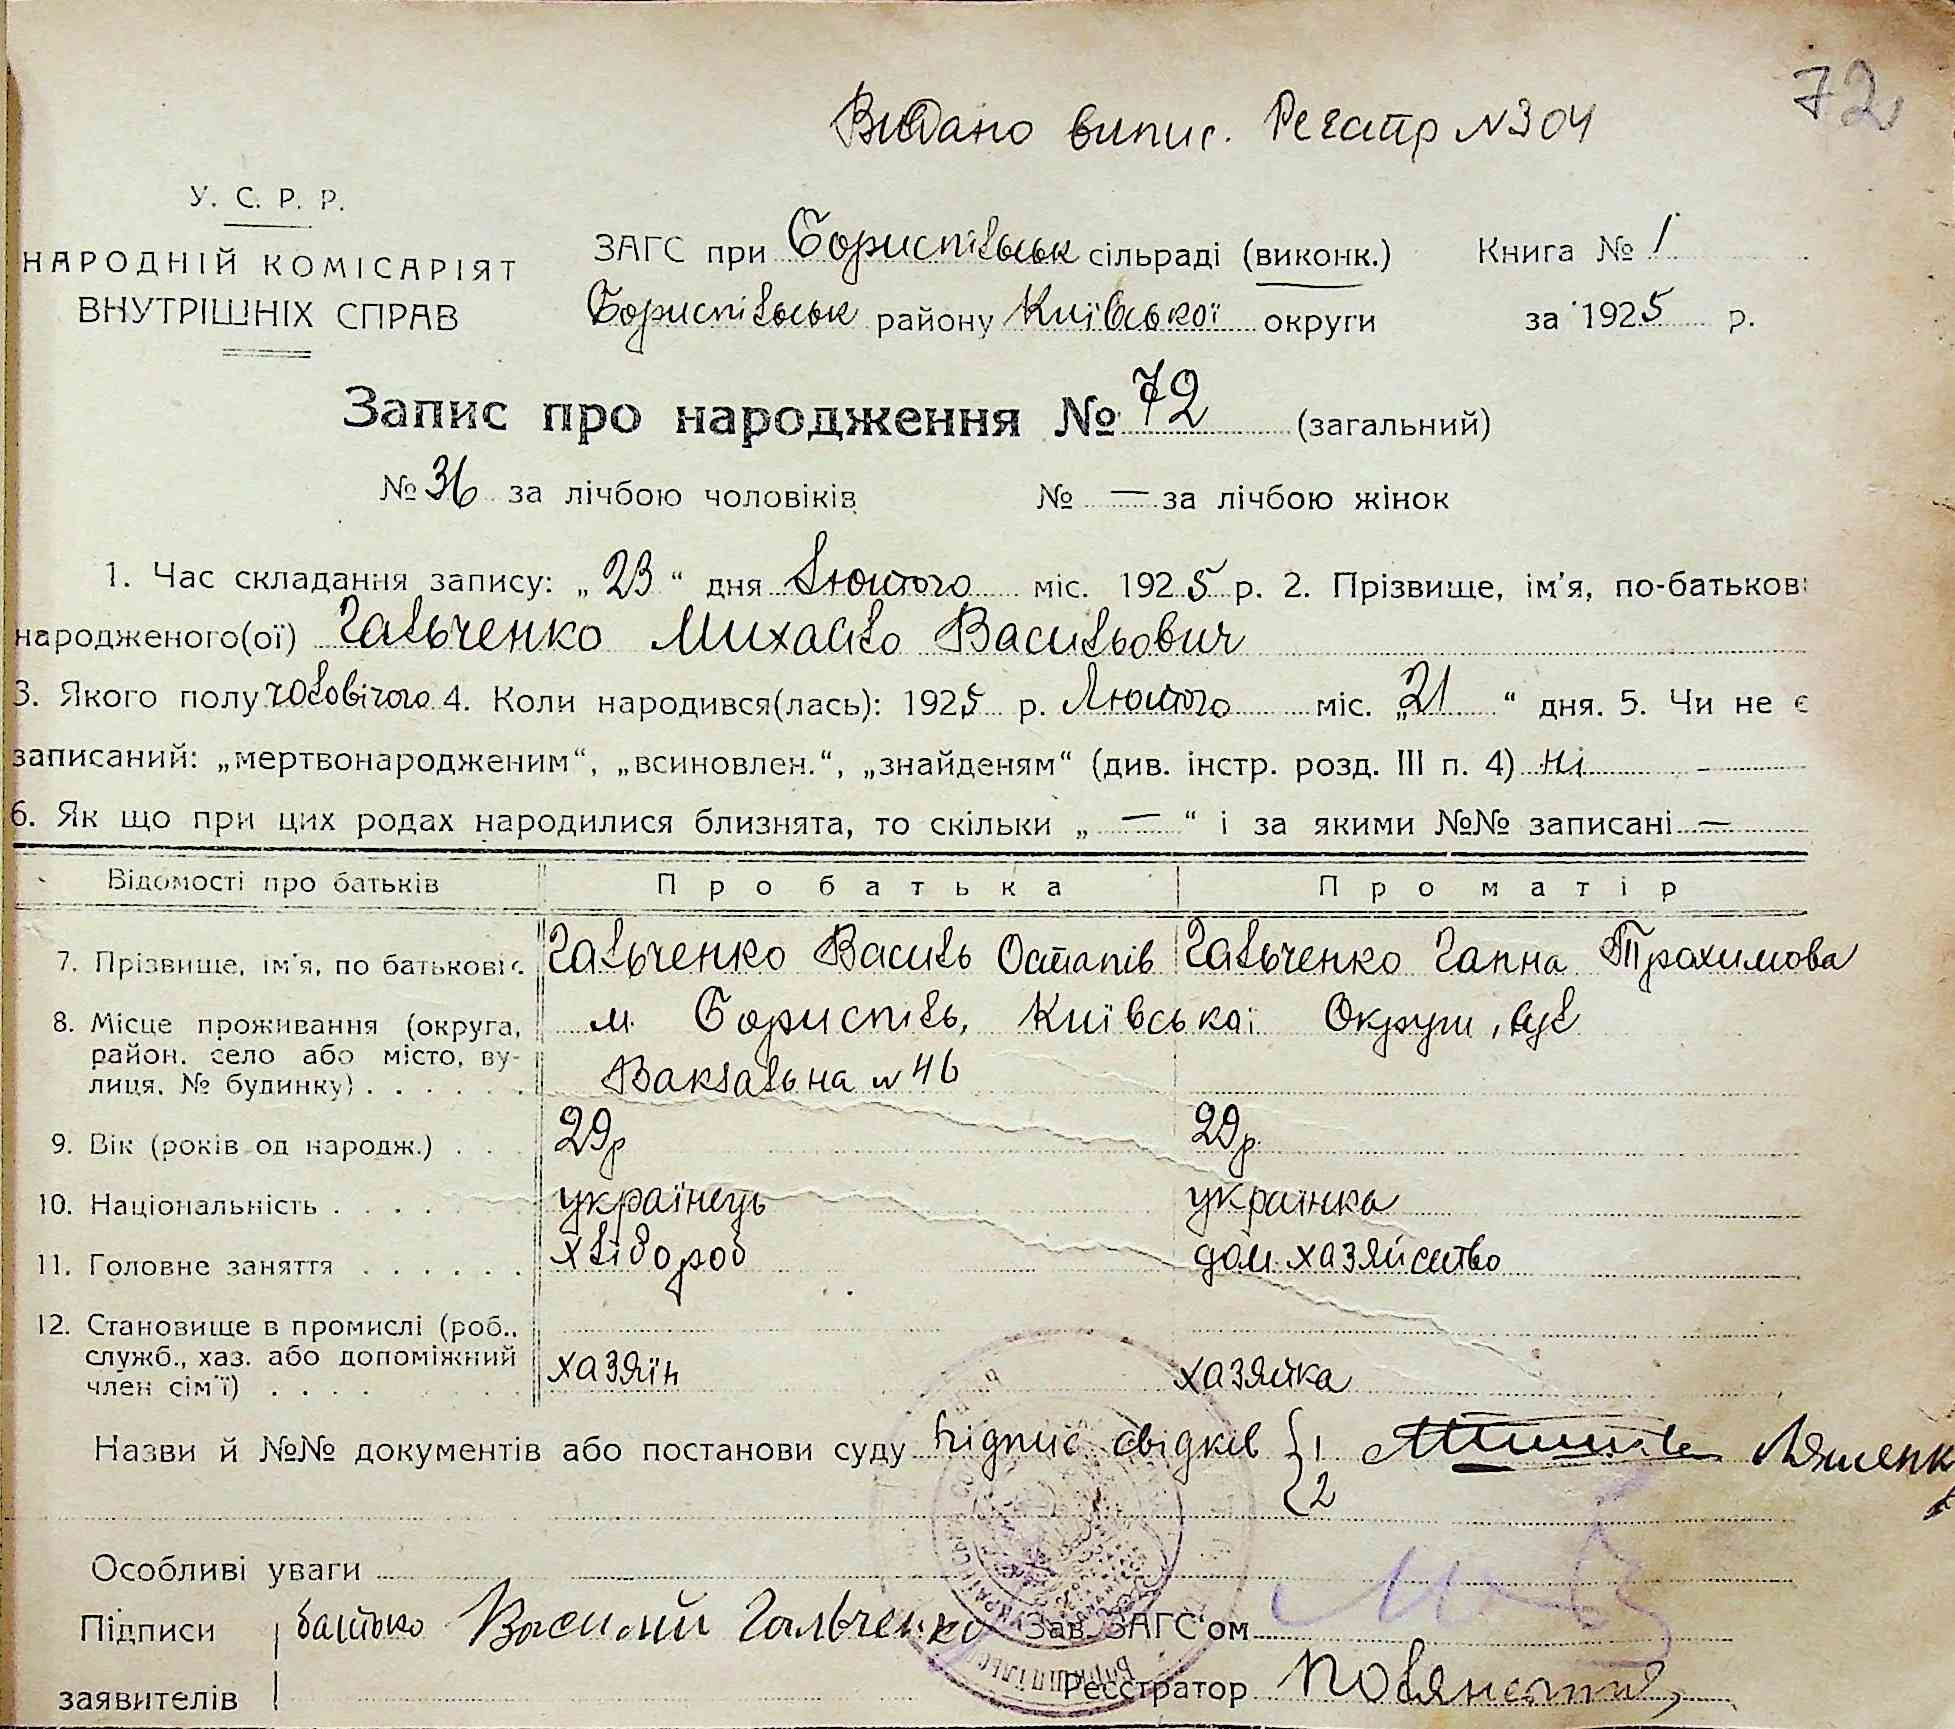 72
Видано випис. Реєстр №304
У. С. Р. Р.
НАРОДНІЙ КОМІСАРІЯТ
ВНУТРІШНІХ СПРАВ
ЗАГС при Бориспільськ сільраді (виконк.)
Бориспільськ району Київської округи
Книга № 1
за 1925 р.
Запис про народження № 72 (загальний)
№ 36 за лічбою чоловіків № — за лічбою жінок
1. Час складання запису: „23“ дня Лютого міс. 1925 р. 2. Прізвище, ім'я, по-батькові
народженого(ої) Гальченко Михайло Васильович
3. Якого полу чоловічого 4. Коли народився(лась): 1925 р. Лютого міс. „21“ дня. 5. Чи не є
записаний: „мертвонародженим“, „всиновлен.“, „знайденям“ (див. інстр. розд. III п. 4) ні —
6. Як що при цих родах народилися близнята, то скільки „ — “ і за якими №№ записані —
Відомості про батьків Про батька Про матір
7. Прізвище, ім'я, по батькові Гальченко Василь Остапів Гальченко Ганна Трохимова
8. Місце проживання (округа, район, село або місто, вулиця, № будинку) м. Бориспіль, Київської Округи, вул
Вакзальна № 46
9. Вік (років од народж.) 29р 29р.
10. Національність українець українка
11. Головне заняття хлібороб дом. хазяйство
12. Становище в промислі (роб., служб., хаз. або допоміжний член сім'ї) хазяїн хазяйка
Назви й №№ документів або постанови суду підпис свідків 1
2
Особливі уваги
Підписи батько Василий Гальченко Зав. ЗАГС'ом
заявителів Реєстратор